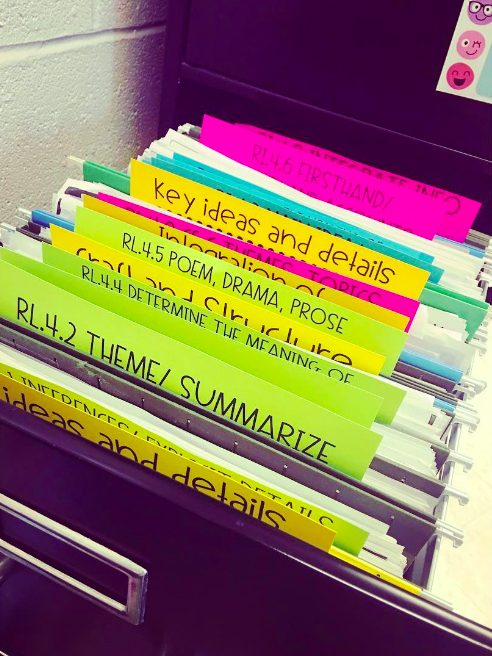 INTEGRATE INFO
RI.4.6 FIRSTHAND/
Key ideas and details
THEMES, TOPICS
Integration of
RL.4.5 POEM, DRAMA, PROSE
Craft and Structure
RL.4.4 DETERMINE THE MEANING OF
RL.4.2 THEME/ SUMMARIZE
1 INFERENCES/ EXPLICIT DETAILS
ideas and details